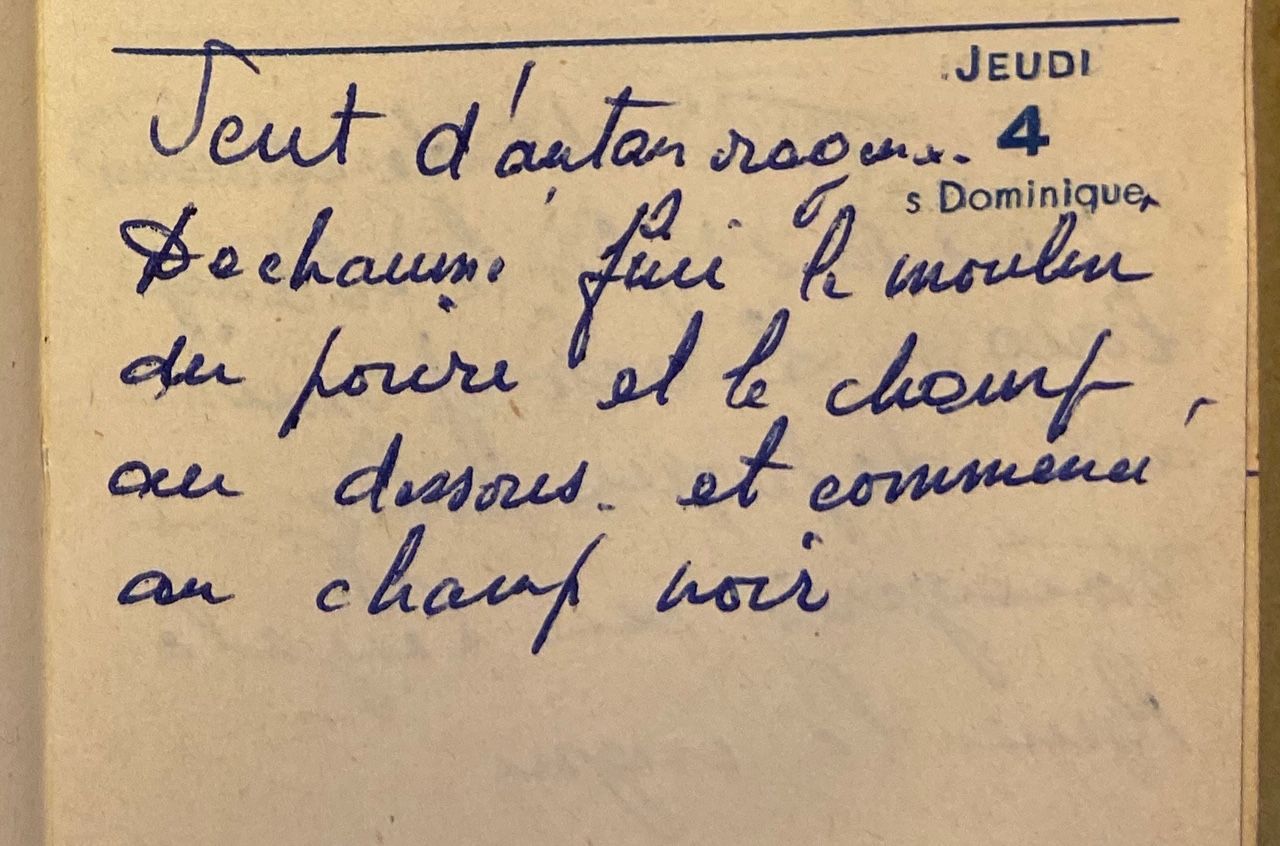 JEUDI
Vent d'autan rageux. 4
s Dominique
Dechaumé fini le moulin
du poivre et le champ
au dessous. et commencé
au champ noir